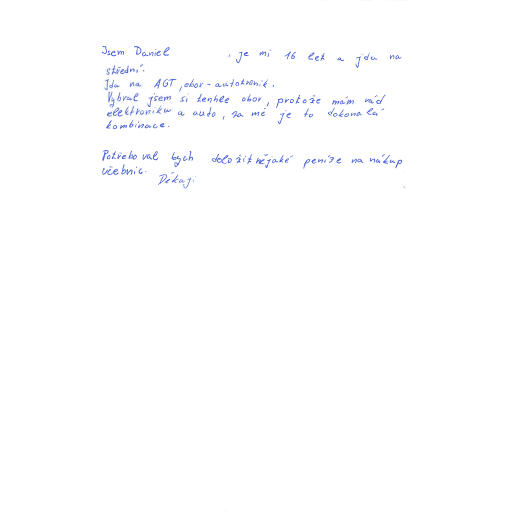 Jsem Daniel , je mi 16 let a jdu na
střední.
Jdu na AGT, obor - autotronik.
Vybral jsem si tenhle obor, protože mám rád
elektroniku a auto, za mě je to dokonalá
kombinace.
Potřeboval bych doložit nějaké peníze na nákup
učebnic.
Děkaji